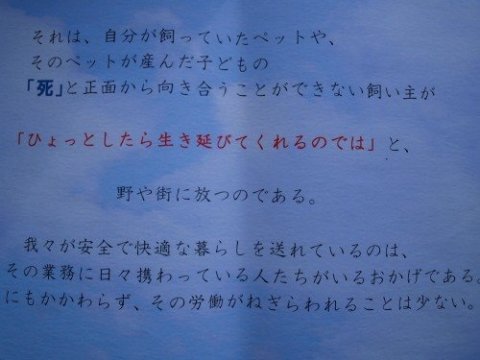 それは、自分が飼っていたペットや、
そのペットが産んだ子どもの
「死」と正面から向き合うことができない飼い主が
「ひょっとしたら生き延びてくれるのでは」と、
野や街に放つのである。
我々が安全で快適な暮らしを送れているのは、
その業務に日々携わっている人たちがいるおかげである。
にもかかわらず、その労働がねぎらわれることは少ない。